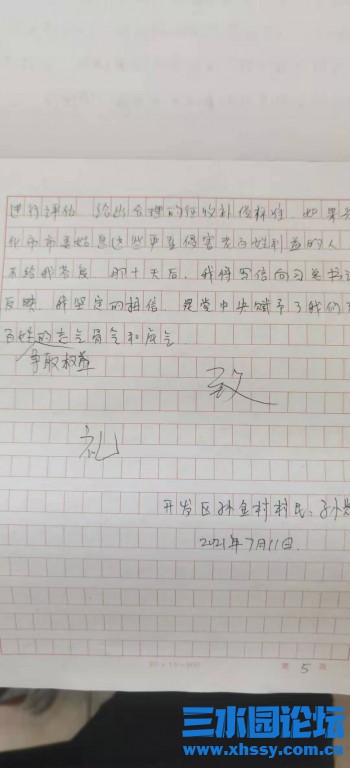 进行评估 给出合理的征收补偿标准 如果
化市市委姑息这些严重侵害老百姓利益的人
不给我答复 的十天后 我将写信向习总书记
反映 我坚定的相信 是党中央赋予了我们
百姓的志气骨气和底气
争取权益
致
礼
开发区孙金村村民:孙
2021年7月11日
20×15=300
第 5 页
三水园论坛
www.xhssy.com.cn